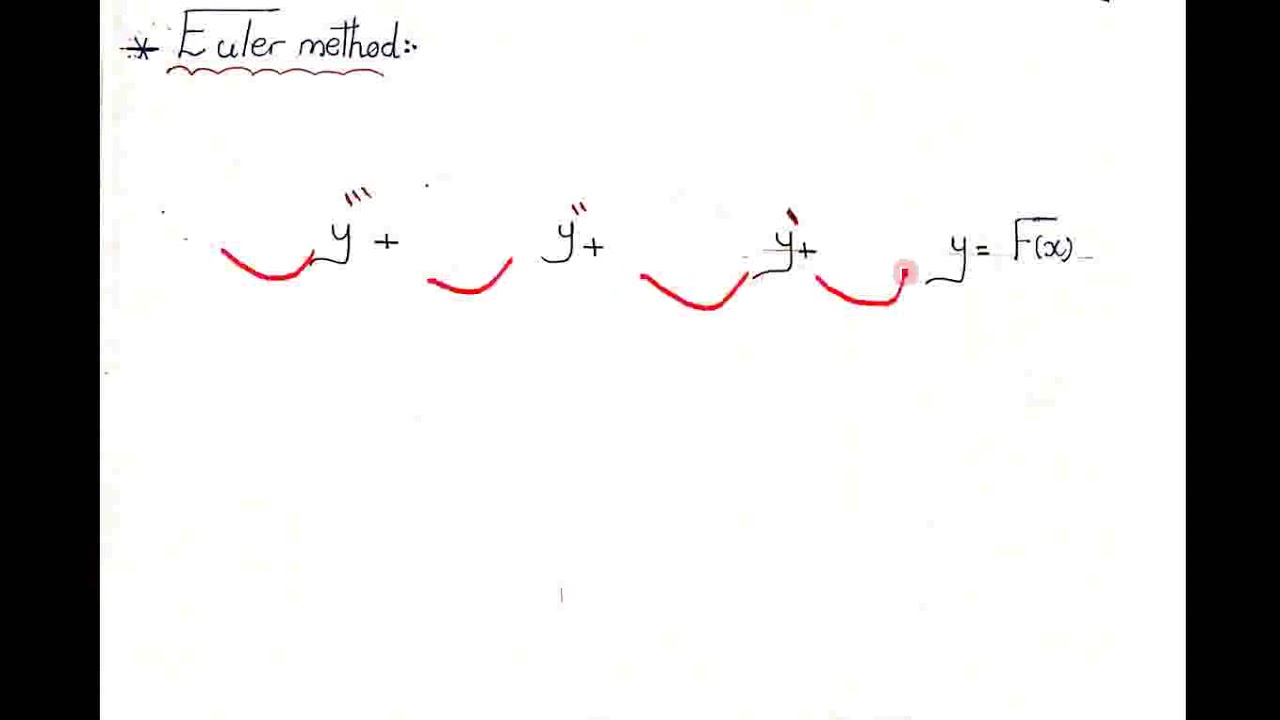 * Euler method:-
y''' + y'' + y' + y = F(x)